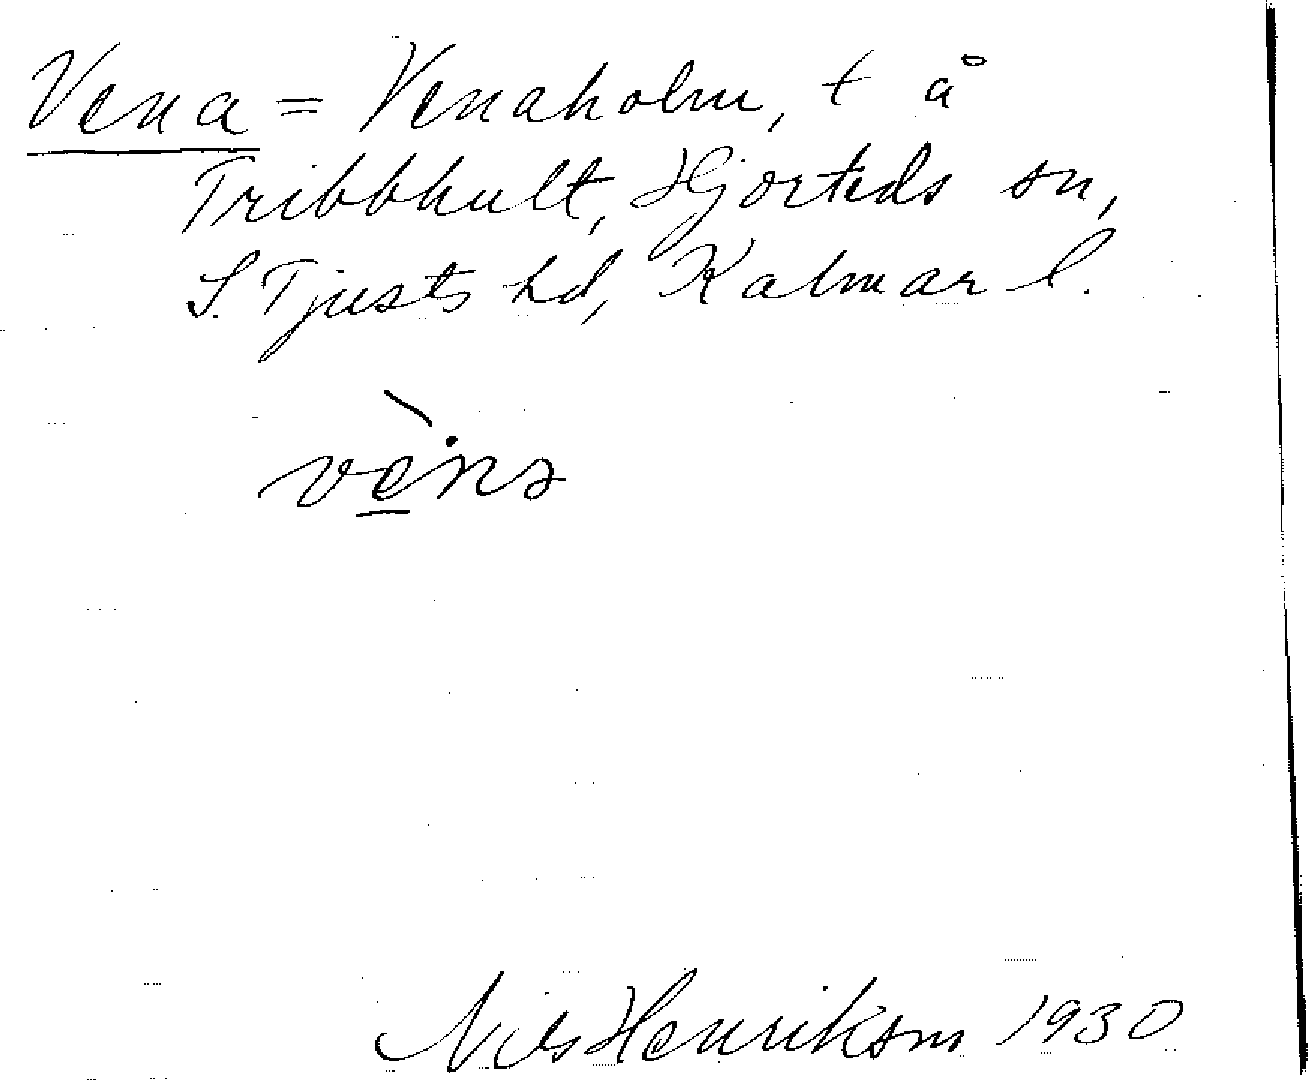 Vena = Venaholm, t å
Tribbhult, Hjorteds sn,
S. Tjusts hd, Kalmar l.
Nils Henrikson 1930